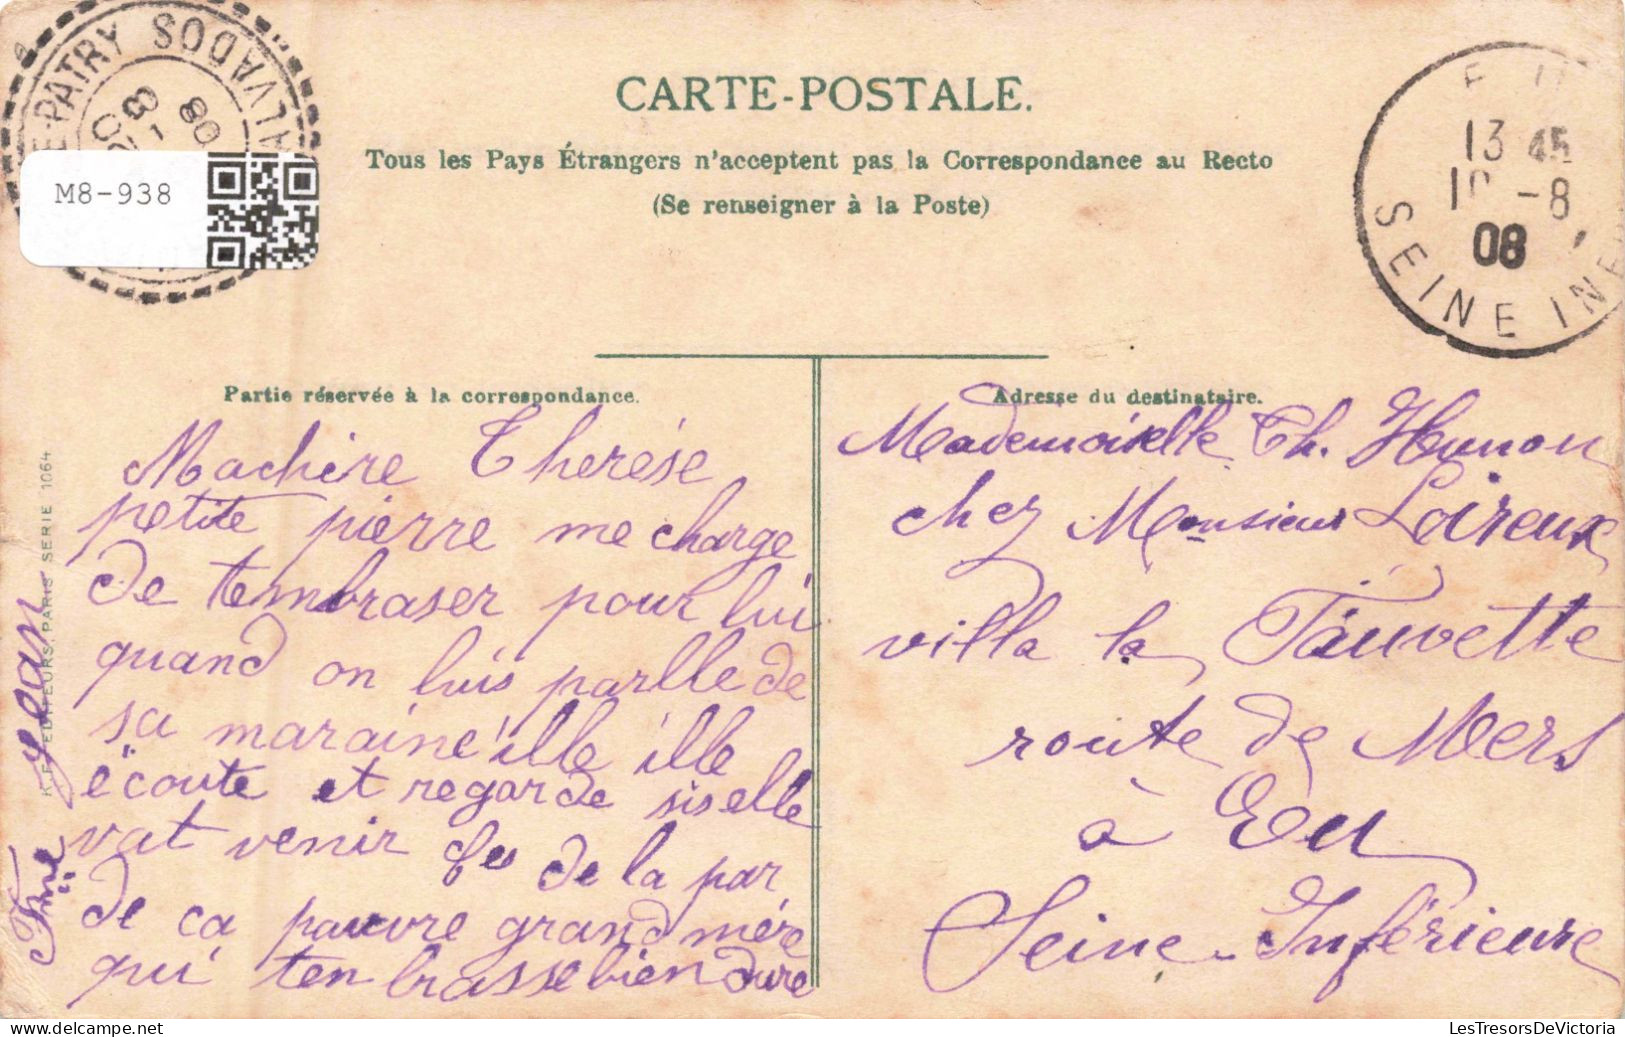 CARTE-POSTALE.
Tous les Pays Étrangers n'acceptent pas la Correspondance au Recto
(Se renseigner à la Poste)
E-PATRY CALVADOS
8 08
M8-938
13 45
-8
08
SEINE INF
Partie réservée à la correspondance.
Machère Therése
petite pierre me charge
de tembraser pour lui
quand on luis parlle de
sa maraine ille ille
écoute et regarde siselle
vat venir de la par
de ca pauvre grand mère
qui ten brasse bien dure
Jean
Adresse du destinataire.
Mademoiselle Th. Hunon
chez Monsieur Loireux
villa la Fauvette
route de Mers
à Eu
Seine-Inférieure
EDITEURS, PARIS SERIE 1064
LesTresorsDeVictoria